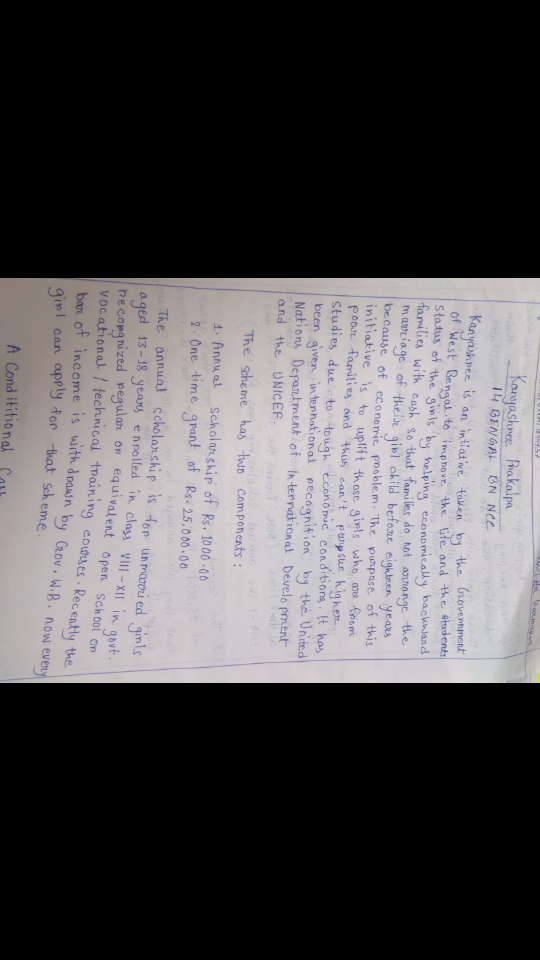 Kanyashree Prakalpa
14 BENGAL BN NCC
Kanyashree is an intiative taken by the Government
of West Bengal to improve the life and the students
status of the girls by helping economically backward
families with cash so that families do not arrange the
marriage of their girl child before eighteen years
because of economic problem. The purpose of this
initiative is to uplift those girls who are from
poor families and thus can't purpsue higher
studies due to tough economic conditions. It has
been given international recognition by the United
Nations Department of International Development
and the UNICEF.
The scheme has two components:
1. Annual scholarship of Rs. 1000.00
2. One time grant of Rs. 25,000.00
The annual scholarship is for unmarried girls
aged 13-18 years enrolled in class VIII-XII in govt.
recongnized regular or equivalent open school or
vocational/technical training courses. Recently the
bar of income is withdrawn by Gov. W.B. now every
girl can apply for that scheme.
A Condititional Cash